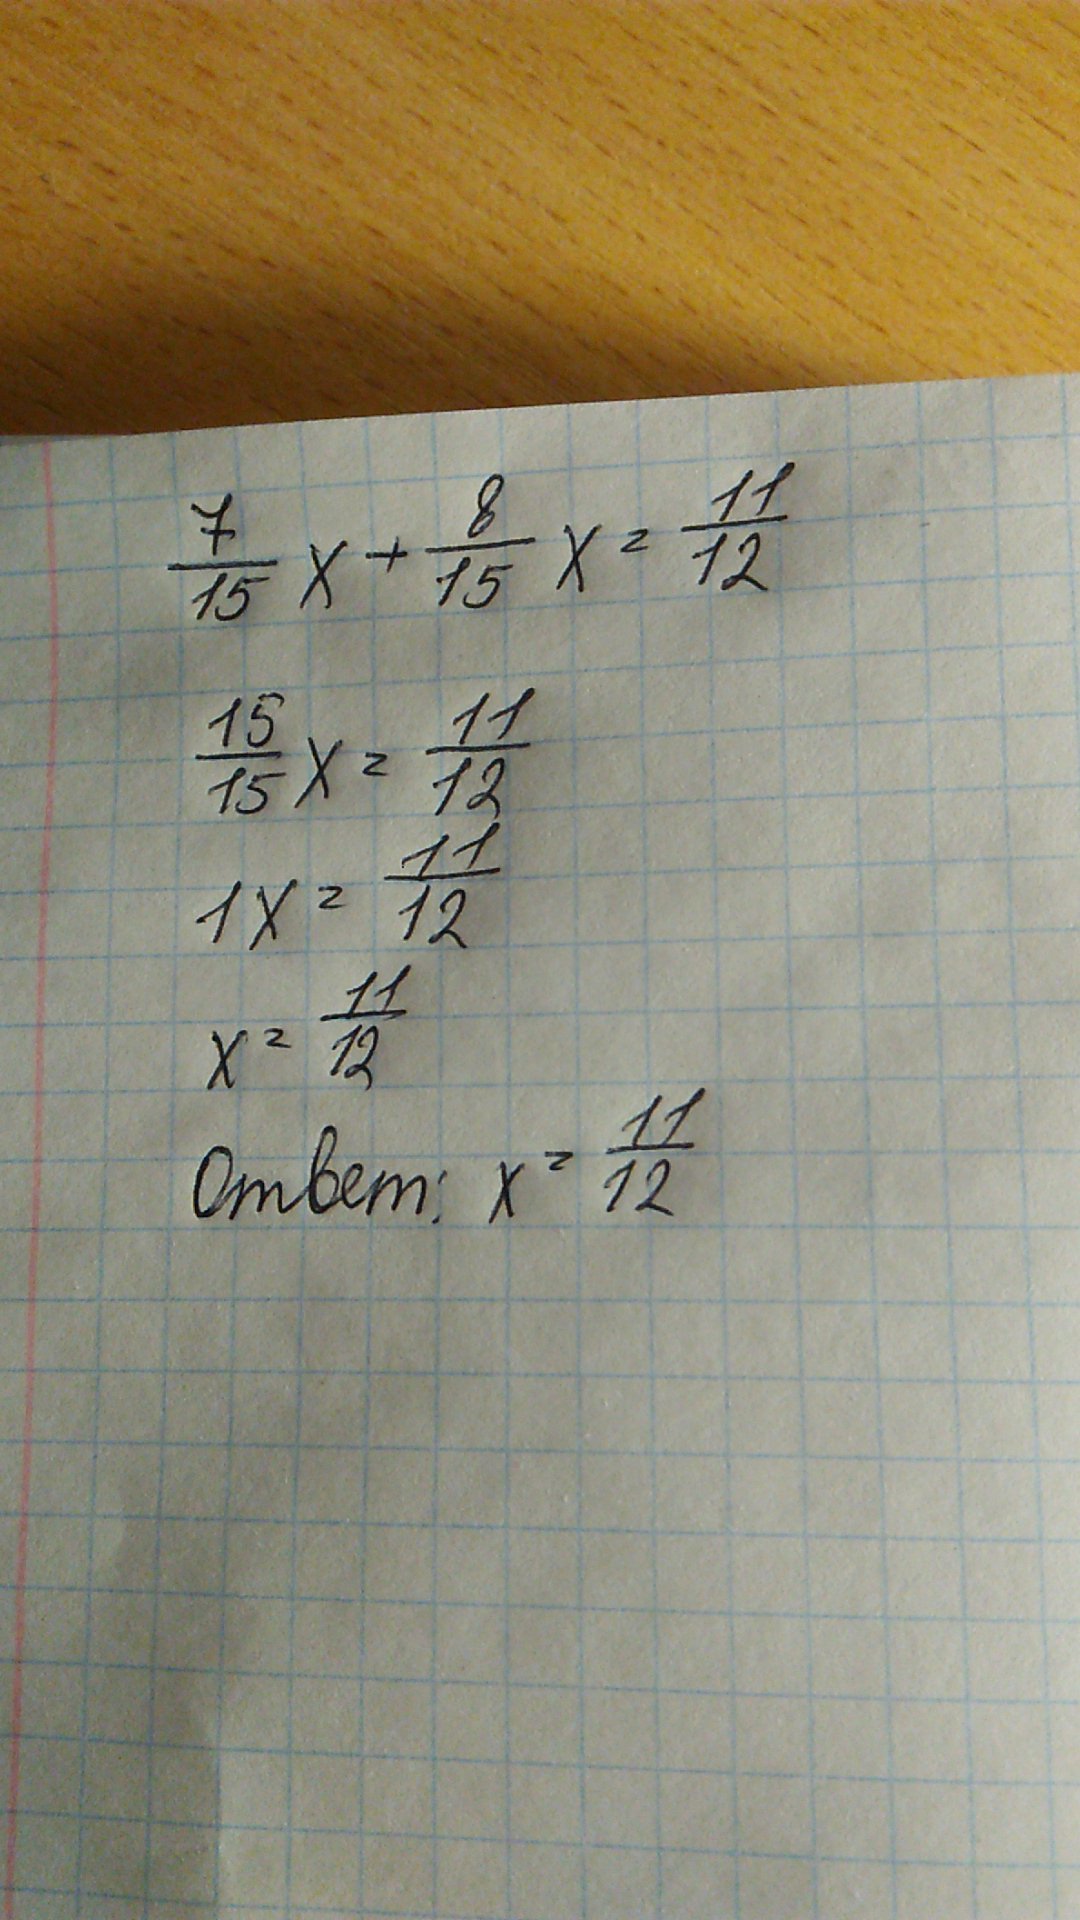 7/15 x + 8/15 x = 11/12
15/15 x = 11/12
1x = 11/12
x = 11/12
Ответ: x = 11/12